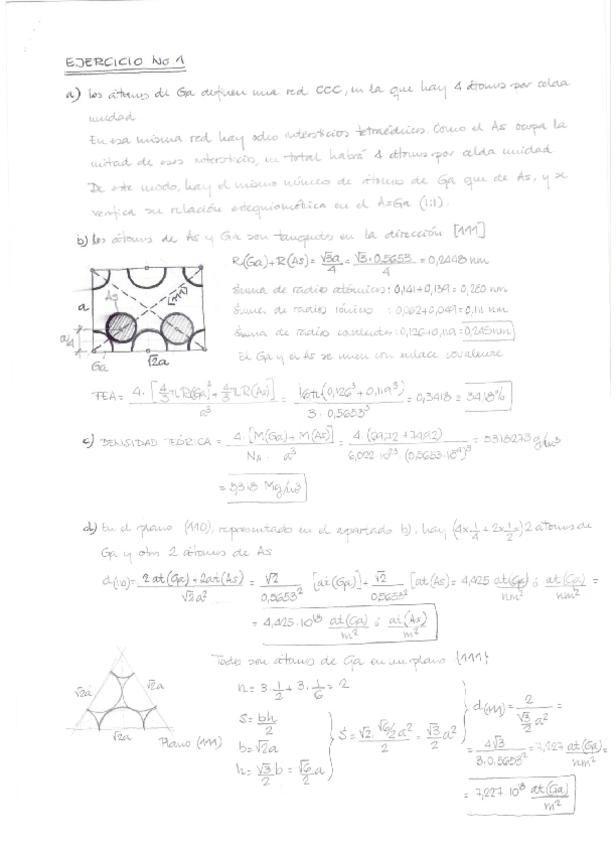 EJERCICIO No 1
a) Los átomos de Ga definen una red CCC, en la que hay 4 átomos por celda
unidad
En esa misma red hay ocho intersticios tetraédricos. Como el As ocupa la
mitad de esos intersticios, en total habrá 4 átomos por celda unidad
De este modo, hay el mismo número de átomos de Ga que de As, y se
verifica su relación estequiométrica en el AsGa (1:1).
b) Los átomos de As y Ga son tangentes en la dirección [111]
R(Ga)+R(As) = √3a/4 = √3·0,5653/4 = 0,2448 nm
Suma de radio atómicos: 0,141+0,139 = 0,280 nm
Suma de radio iónicos: 0,062+0,049 = 0,111 nm
Suma de radio covalentes: 0,126+0,119 = 0,245 nm
El Ga y el As se unen con enlace covalente
a
a/4
As
[111]
Ga
√2a
FEA = 4·[4/3πR(Ga)³+4/3πR(As)]/a³ = 16π(0,126³+0,119³)/3·0,5653³ = 0,3418 = 34,18%
c) DENSIDAD TEÓRICA = 4·[M(Ga)+M(As)]/NA·a³ = 4·(69,72+74,92)/6,022·10²³·(0,5653·10⁻⁹)³ = 5318273 g/m³
= 5,318 Mg/m³
d) En el plano (110), representado en el apartado b), hay (4x1/4 + 2x1/2) 2 átomos de
Ga y otros 2 átomos de As
d(110) = 2at(Ga)+2at(As)/√2a² = √2/0,5653² [at(Ga)]+ √2/0,5653² [at(As) = 4,425 at(Ga)/nm² ó at(Ga)/nm² =
= 4,425·10¹⁸ at(Ga)/m² ó at(As)/m²
Todos son átomos de Ga en un plano {111}
√2a
√2a
√2a
Plano (111)
n = 3·1/2 + 3·1/6 = 2
S = bh/2
b = √2a
h = √3/2 b = √6/2 a
S = √2·√6/2 a²/2 = √3/2 a²
d(111) = 2/√3/2 a² =
= 4√3/3·0,5653² = 7,227 at(Ga)/nm² =
= 7,227·10¹⁸ at(Ga)/m²